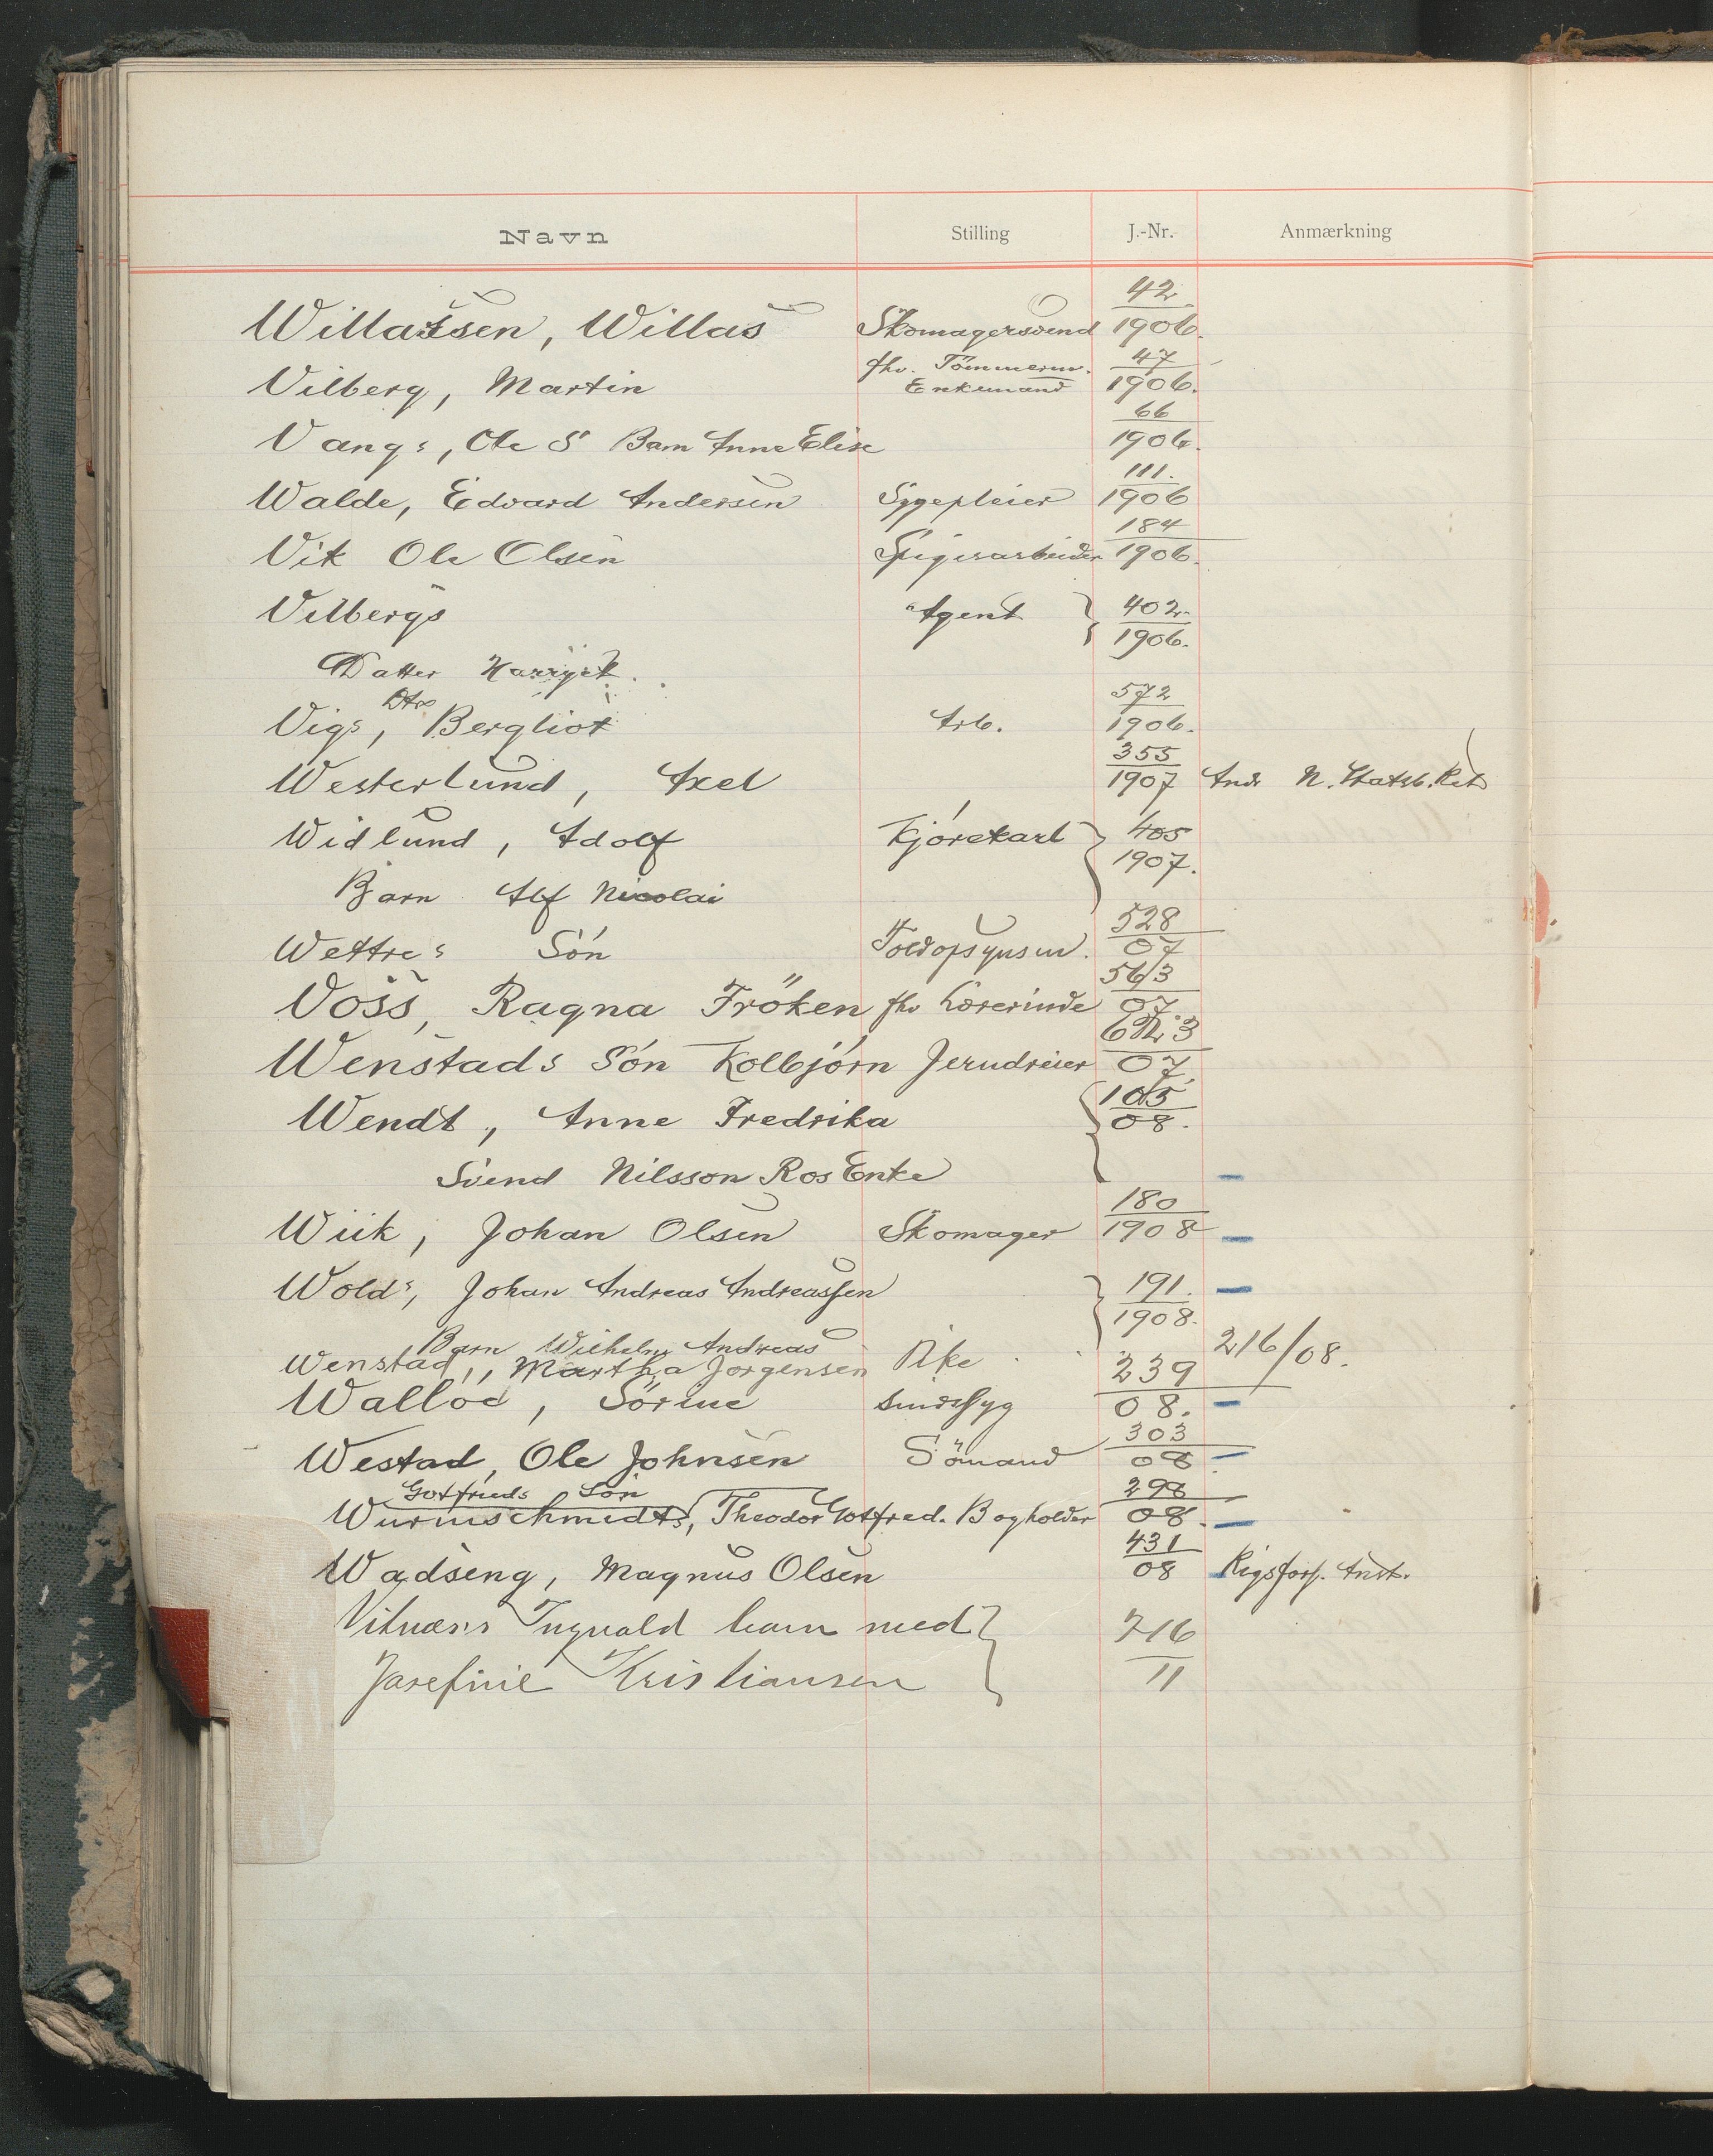 Navn Stilling J.-Nr. Anmærkning
Willassen, Willas Skomagersvend 42/1906.
Vilberg, Martin fhv. Tömmerm. Enkemand 47/1906.
Vangs, Ole S Barn Anne Elise 66/1906.
Walde, Edvard Andersen Sygepleier 111./1906
Vik Ole Olsen Spigerarbeider 184/1906.
Vilbergs Agent 402/1906.
Datter Harryet.
Vigs, Dtr Bergliot Arb. 572/1906.
Westerlund, Axel 355/1907 Andr N. Statsb. Ret
Widlund, Adolf Kjörekarl 405/1907.
Barn Alf Nicolai
Wettres Sön Toldopsynsm. 528/07
Voss, Ragna Fröken fhv Lærerinde 563/07
Wenstads Sön Kolbjörn Jerndreier 07
Wendt, Anne Fredrika 105/08.
Svend Nilsson Ros Enke
Wiik, Johan Olsen Skomager 180/1908 —
Wolds, Johan Andreas Andreassen 191./1908. —
Barn Wilhelm Andreas
Wenstad, Martha Jörgensen Pike 216/08.
Walloe, Sörine sindssyg 239/08. —
Westad, Ole Johnsen Sömand 303/08 —
Gotfrieds Sön
Wurmschmidts, Theodor Gotfred. Bogholder 298/08. —
Wadseng, Magnus Olsen 431/08 Rigsforf. Anst.
Vitnæs's Ingvald barn med
Josefine Kristiansen 716/11